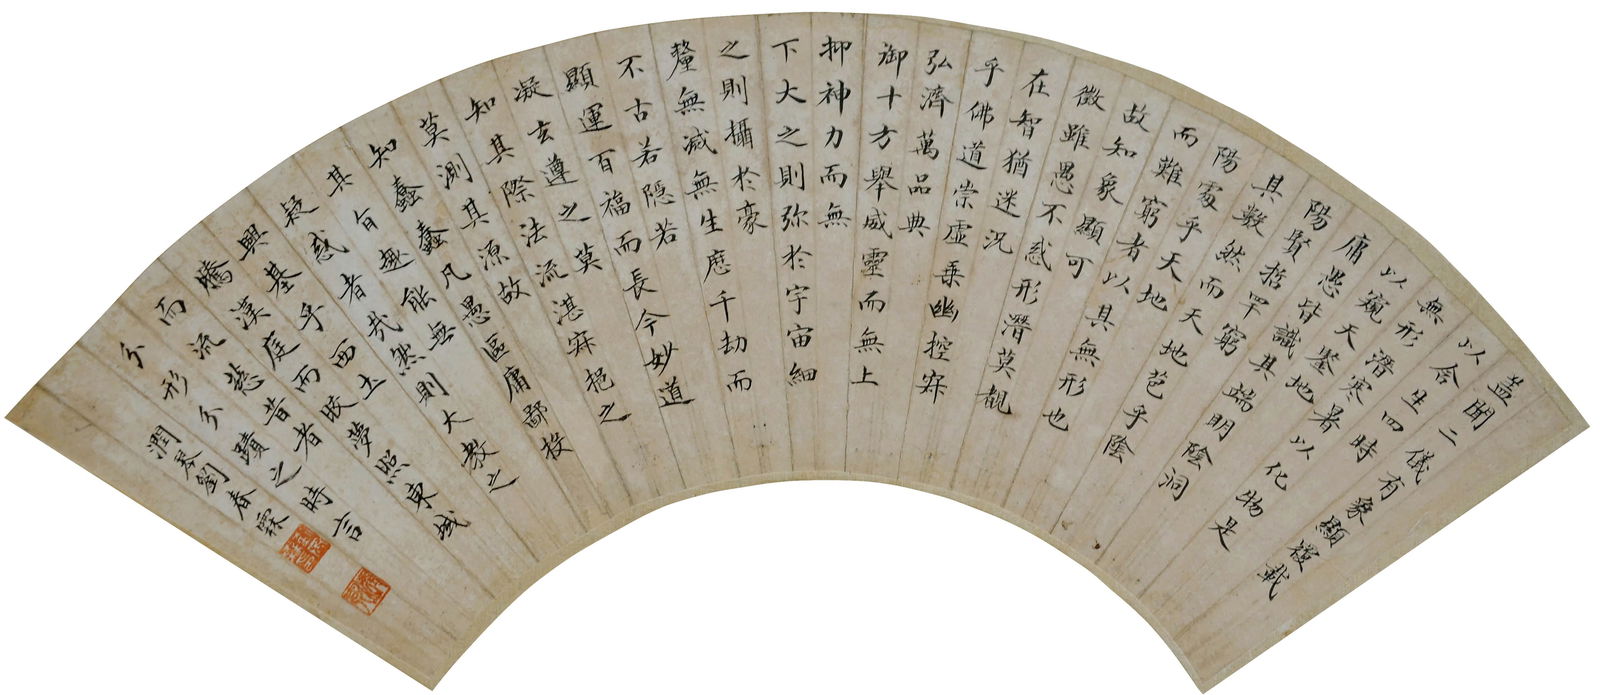 蓋聞二儀有象顯覆載
以含生四時
無形潛寒暑以化物是
以窺天鑒地
庸愚皆識其端明陰洞
陽賢哲罕窮
其數然而天地苞乎陰
陽處乎天地
而難窮者以其無形也
故知象顯可
徵雖愚不惑形潛莫覩
在智猶迷況
乎佛道崇虛乘幽控寂
弘濟萬品典
御十方舉威靈而無上
抑神力而無
下大之則弥於宇宙細
之則攝於豪
釐無滅無生歷千劫而
不古若隱若
顯運百福而長今妙道
凝玄遵之莫
知其際法流湛寂挹之
莫測其源故
知蠢蠢凡愚區庸鄙投
其旨趣能無
疑惑者哉然則大教之
興基乎西土
騰漢庭而皎夢照東域
而流慈昔者
分形分蹟之時言
潤琴劉春霖